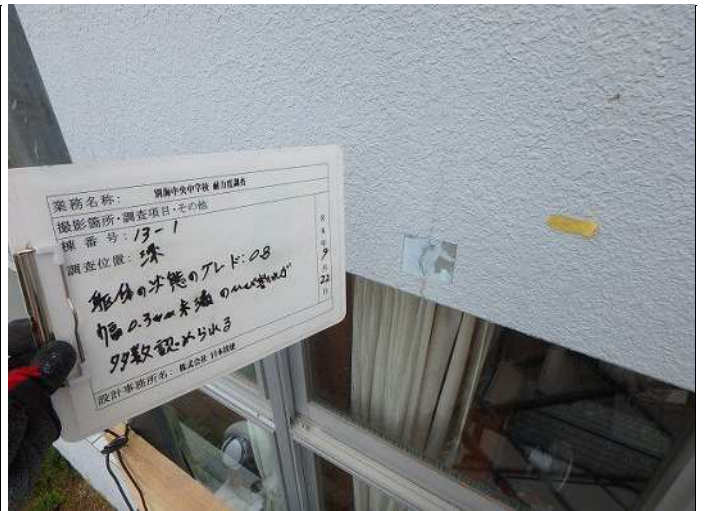 業務名称: 別海中央中学校 耐力度調査
撮影箇所・調査項目・その他
棟番号: 13-1
調査位置: 梁
躯体の状態のグレード: 0.8
幅0.3mm未満のひび割れが
多数認められる
設計事務所名: 株式会社
年9月22日